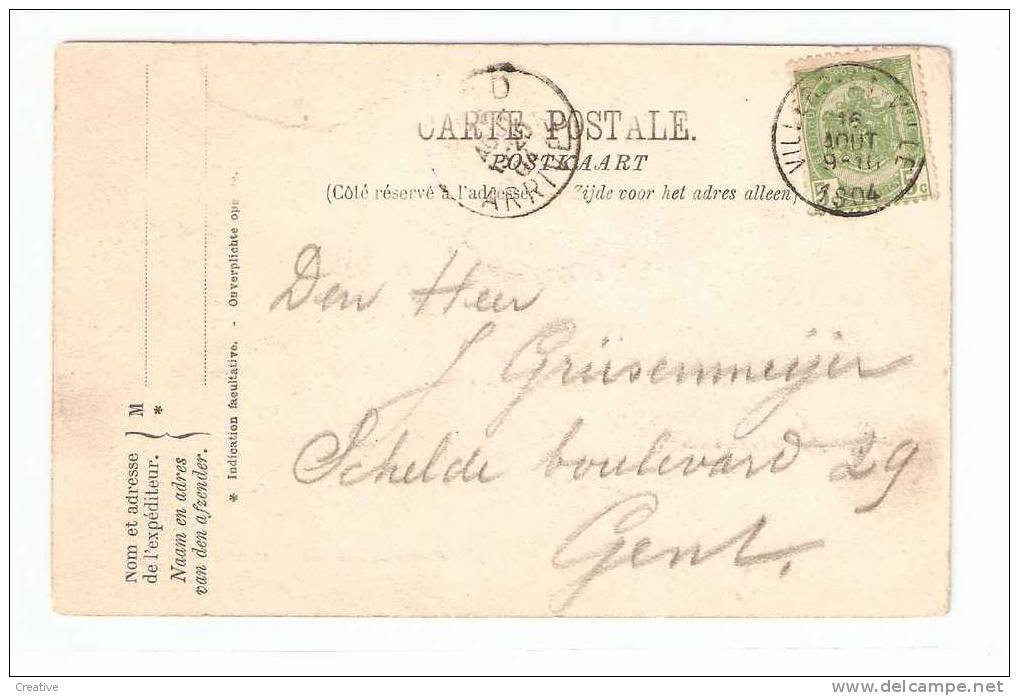 CARTE POSTALE.
POSTKAART
(Côté réservé à l'adresse. Zijde voor het adres alleen)
ARRIVEE
16
AOUT
1904
5c
Den Heer
J. Grüsenmeijer
Schelde boulevard 29
Gent.
Nom et adresse
de l'expéditeur.
Naam en adres
van den afzender.
M
*
* Indication facultative. - Onverplichte
Creative
delcampe.net